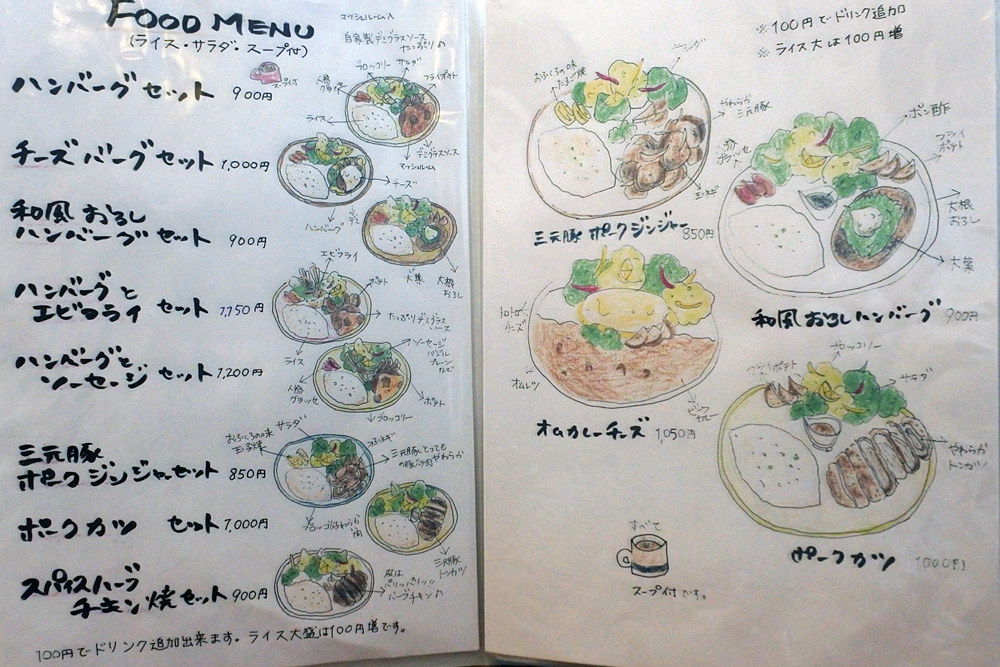 FOOD MENU
(ライス・サラダ・スープ付)
ハンバーグセット 900円
スープ付
チーズバーグセット 1,000円
和風おろし
ハンバーグセット 900円
ハンバーグと
エビフライ セット 1,150円
ハンバーグと
ソーセージ セット 1,200円
三元豚
ポークジンジャーセット 850円
ポークカツ セット 1,000円
スパイスハーブ
チキン焼セット 900円
100円でドリンク追加出来ます。ライス大盛は100円増です。
マッシュルーム入
自家製デミグラスソース
たっぷり♪
ブロッコリー
サラダ
フライポテト
ライス
デミグラスソース
マッシュルーム
チーズ
ハンバーグ
デミ
大葉
大根
おろし
エビフライ
ポテト
たっぷりデミグラス
ソース
ライス
ソーセージ
バジル
プレーン
など
人参
グラッセ
ポテト
ブロッコリー
サラダ
おふくろの味
玉子焼
三元豚
トンカツ
皮は
パリッパリッ!!
ハーブチキン♪
※100円でドリンク追加
※ライス大は100円増
おふくろの味
たまご焼
やわらか
三元豚
三元豚ポークジンジャー 850円
ポン酢
フライ
ポテト
大根
おろし
大葉
和風おろしハンバーグ 900円
チーズ
オムレツ
オムカレーチーズ 1,050円
フライポテト
ブロッコリー
サラダ
やわらか
トンカツ
ポークカツ 1000円
すべて
スープ付です。